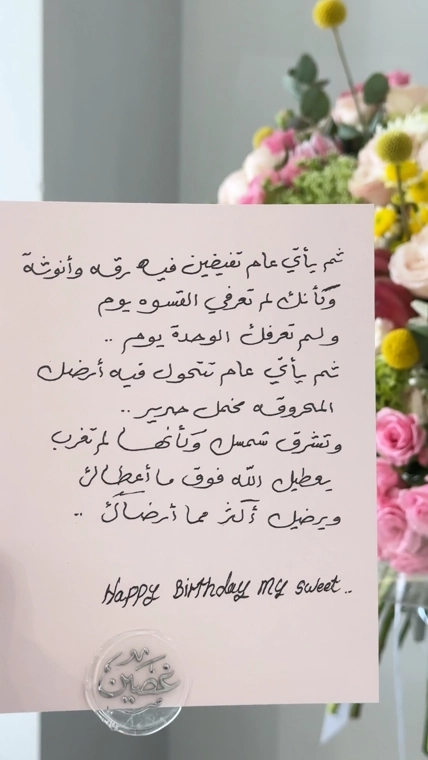 ثم يأتي عام تفيضين فيه رقه وأنوثة
وكأنك لم تعرفي القسوه يوم
ولم تعرفك الوحدة يوم ..
ثم يأتي عام تتحول فيه أرضك
المحروقه مخمل حرير ..
وتشرق شمسك وكأنها لم تغرب
يعطيك الله فوق ما أعطاك
ويرضيك أكثر مما أرضاك ..
Happy Birthday my sweet..
غصين